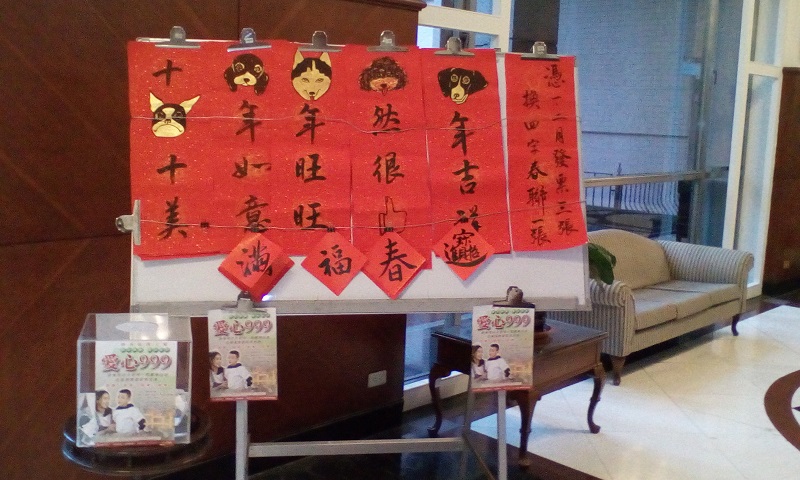 十
十美
年如意
年旺旺
然很
年吉祥
憑一二月發票三張
換四字春聯一張
滿
福
春
招財進寶
愛心999
愛心999
愛心999